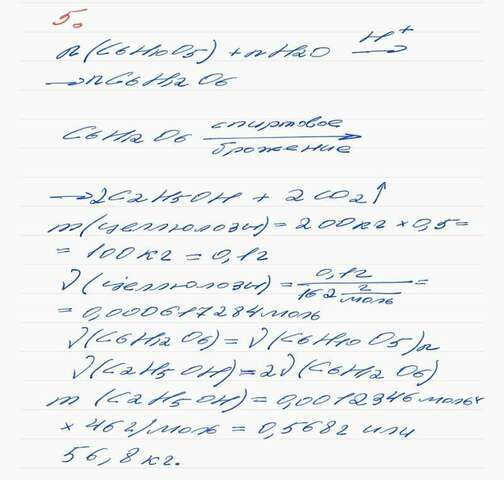 5.
n(C6H10O5) + nH2O H+ →
→ nC6H12O6
C6H12O6 спиртовое брожение →
→ 2C2H5OH + 2CO2↑
m(целлюлозы) = 200кг × 0,5 =
= 100кг = 0,1г
ν(целлюлозы) = 0,1г / 162 г/моль =
= 0,000617284моль
ν(C6H12O6) = ν(C6H10O5)n
ν(C2H5OH) = 2ν(C6H12O6)
m (C2H5OH) = 0,0012346моль
× 46г/моль = 0,568г или
56,8кг.